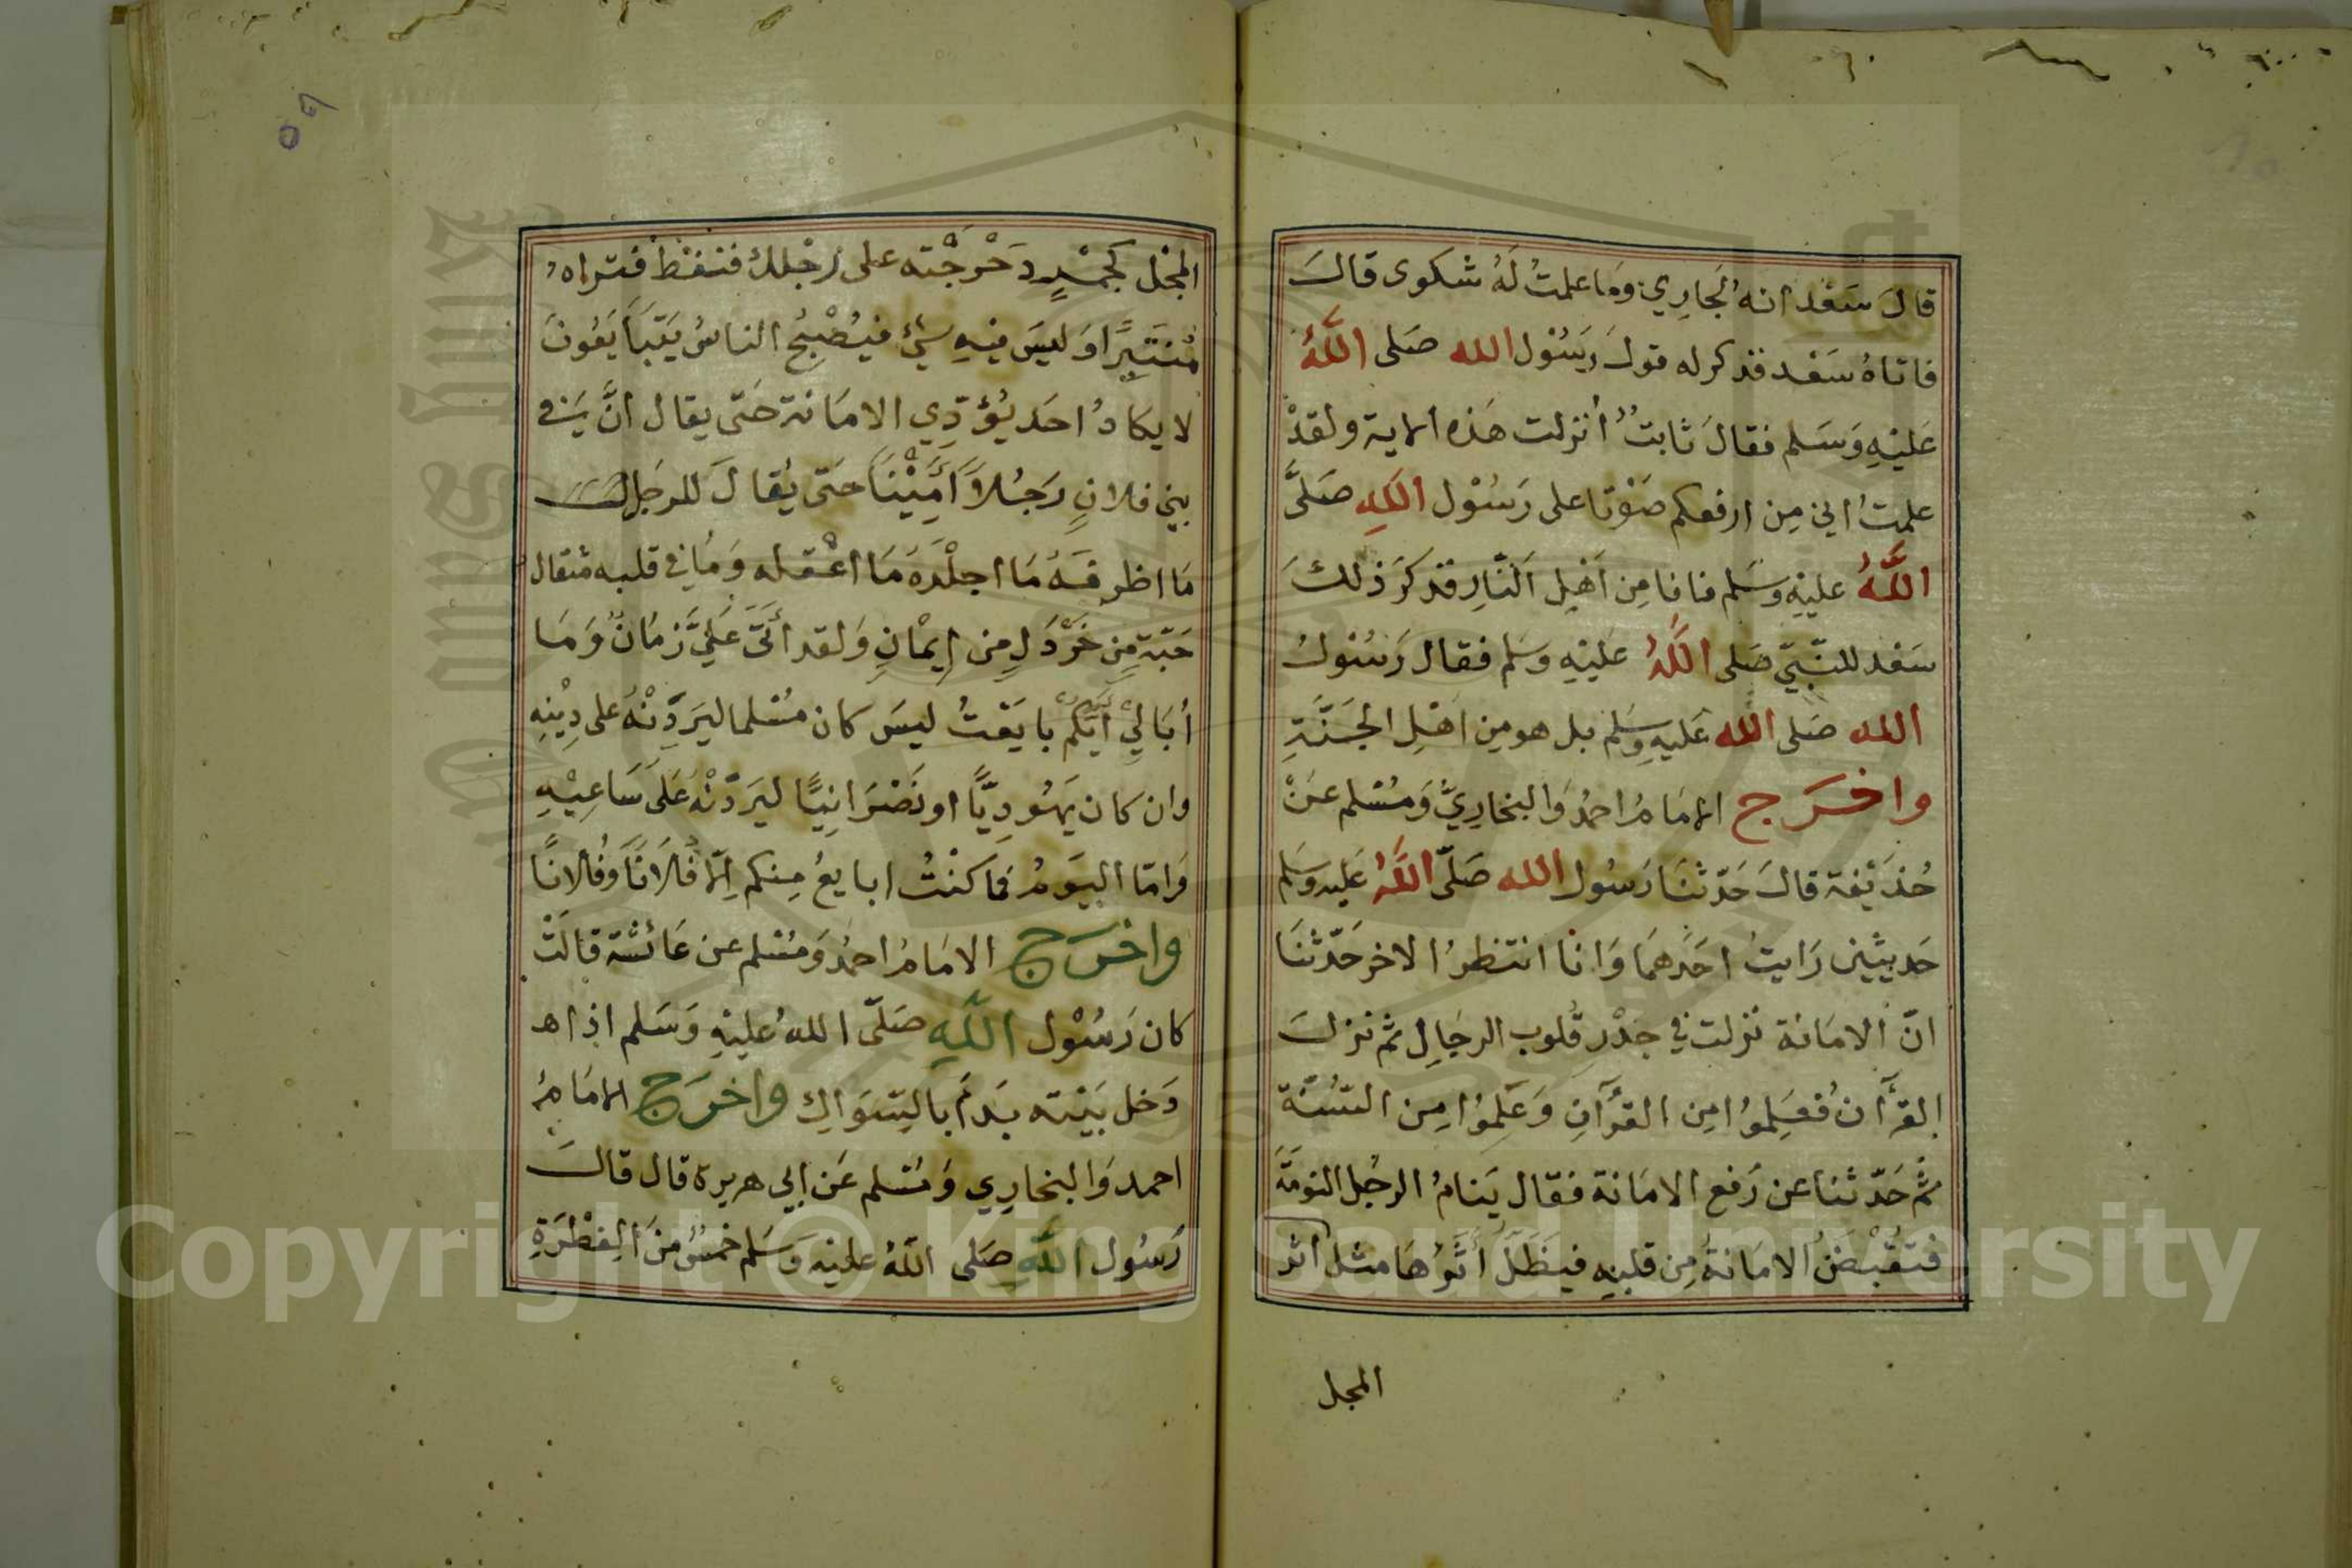 قالَ سَعْد انهُ لَجَارِي وَمَا علمتُ لَهُ شكوى قالَ
فاتاهُ سَعْد فذكر له قولَ رَسُوْل الله صَلى اللَّهُ
عَليْهِ وَسَلم فقالَ ثابتُ أنزلت هَذه الاية ولقدْ
علمتُ اني مِن ارفعكم صَوْتا على رَسُوْل اللهِ صَلىَّ
اللَّهُ عليْهِ وسَلم فانا مِن اَهْلِ اَلنَّارِ فذكرَ ذلكَ
سَعْد للنَّبِيّ صَلى اللَّهُ عَليْهِ وسَلم فقال رَسُوْلُ
الله صَلى الله عَليهِ وسَلم بل هو مِن اَهْلِ الجَنَّةِ
واخرَج الامَامُ احمدُ وَالبخارِيّ وَمُسْلم عَنْ
حُذَيْفة قالَ حَدّثنَا رَسُول الله صَلّى اللَّهُ عَليه وسَلم
حَديثَيْن رَايتُ احَدَهمَا وَانا انتظرُ الاخر حَدّثنَا
انّ الامَانة نزلت في جذْرِ قُلوب الرجَالِ ثم نزلَ
القرَّأنُ فعَلِموُا مِن القرُآنِ وَعَلِموُا مِن السُّنّة
ثم حَدّثنا عن رَفع الامَانة فقال يَنامُ الرجُل النومَةَ
فتقُبْضَُ الامَانةُ مِن قلبِهِ فيَظَلّ أَثَرُهَا مثل اثر
المجل
المجْل كجَمْرٍ دَحْرجْته على رِجْلك فنفطَ فتراه
مُنتَبِرًا وَليسَ فيْهِ شيْء فيُصْبِحُ الناسُ يَتبَايَعُونَ
لا يكادُ احَد يُؤدّي الامَانة حَتى يقال انَّ في
بني فلانٍ رَجُلاً أَمِيْنَا حَتى يُقالَ للرجَل
مَا اظرفَهُ مَا اجلْدَهُ مَا اعْقله وَمَا في قلبه مثقال
حَبّة مِن خَرْدَلٍ مِن إيمْانٍ وَلقد أتَى عَليَّ زمَانٌ وَمَا
أبَالِيْ أيّكم بايَعْتُ ليسَ كان مُسْلما ليَردّنّهُ على دِيْنِهِ
وان كان يَهُودِيًّا او نَصْرَانِيًّا ليَردّنّهُ عَلى سَاعِيْهِ
وَامّا اليَومُ فماكنْتُ ابايعُ مِنكم اِلا فُلاَنًا وَفُلانًا
واخرَج الامَامُ احمدُ وَمُسْلم عن عَائشة قالَتْ
كان رَسُوْل اللهِ صَلّى اللهُ عليْهِ وَسَلم اذا
دَخل بَيْته بدَأ بالسِّوَاكِ واخرَج الامَامُ
احمد وَالبخارِي وَمُسْلم عَن ابي هريرة قال قالَ
رَسُول اللَّهِ صَلى اللَّهُ عليْهِ وَسَلم خمْسُ مِنَ الِفطْرَةِ
Copyright © King Saud University